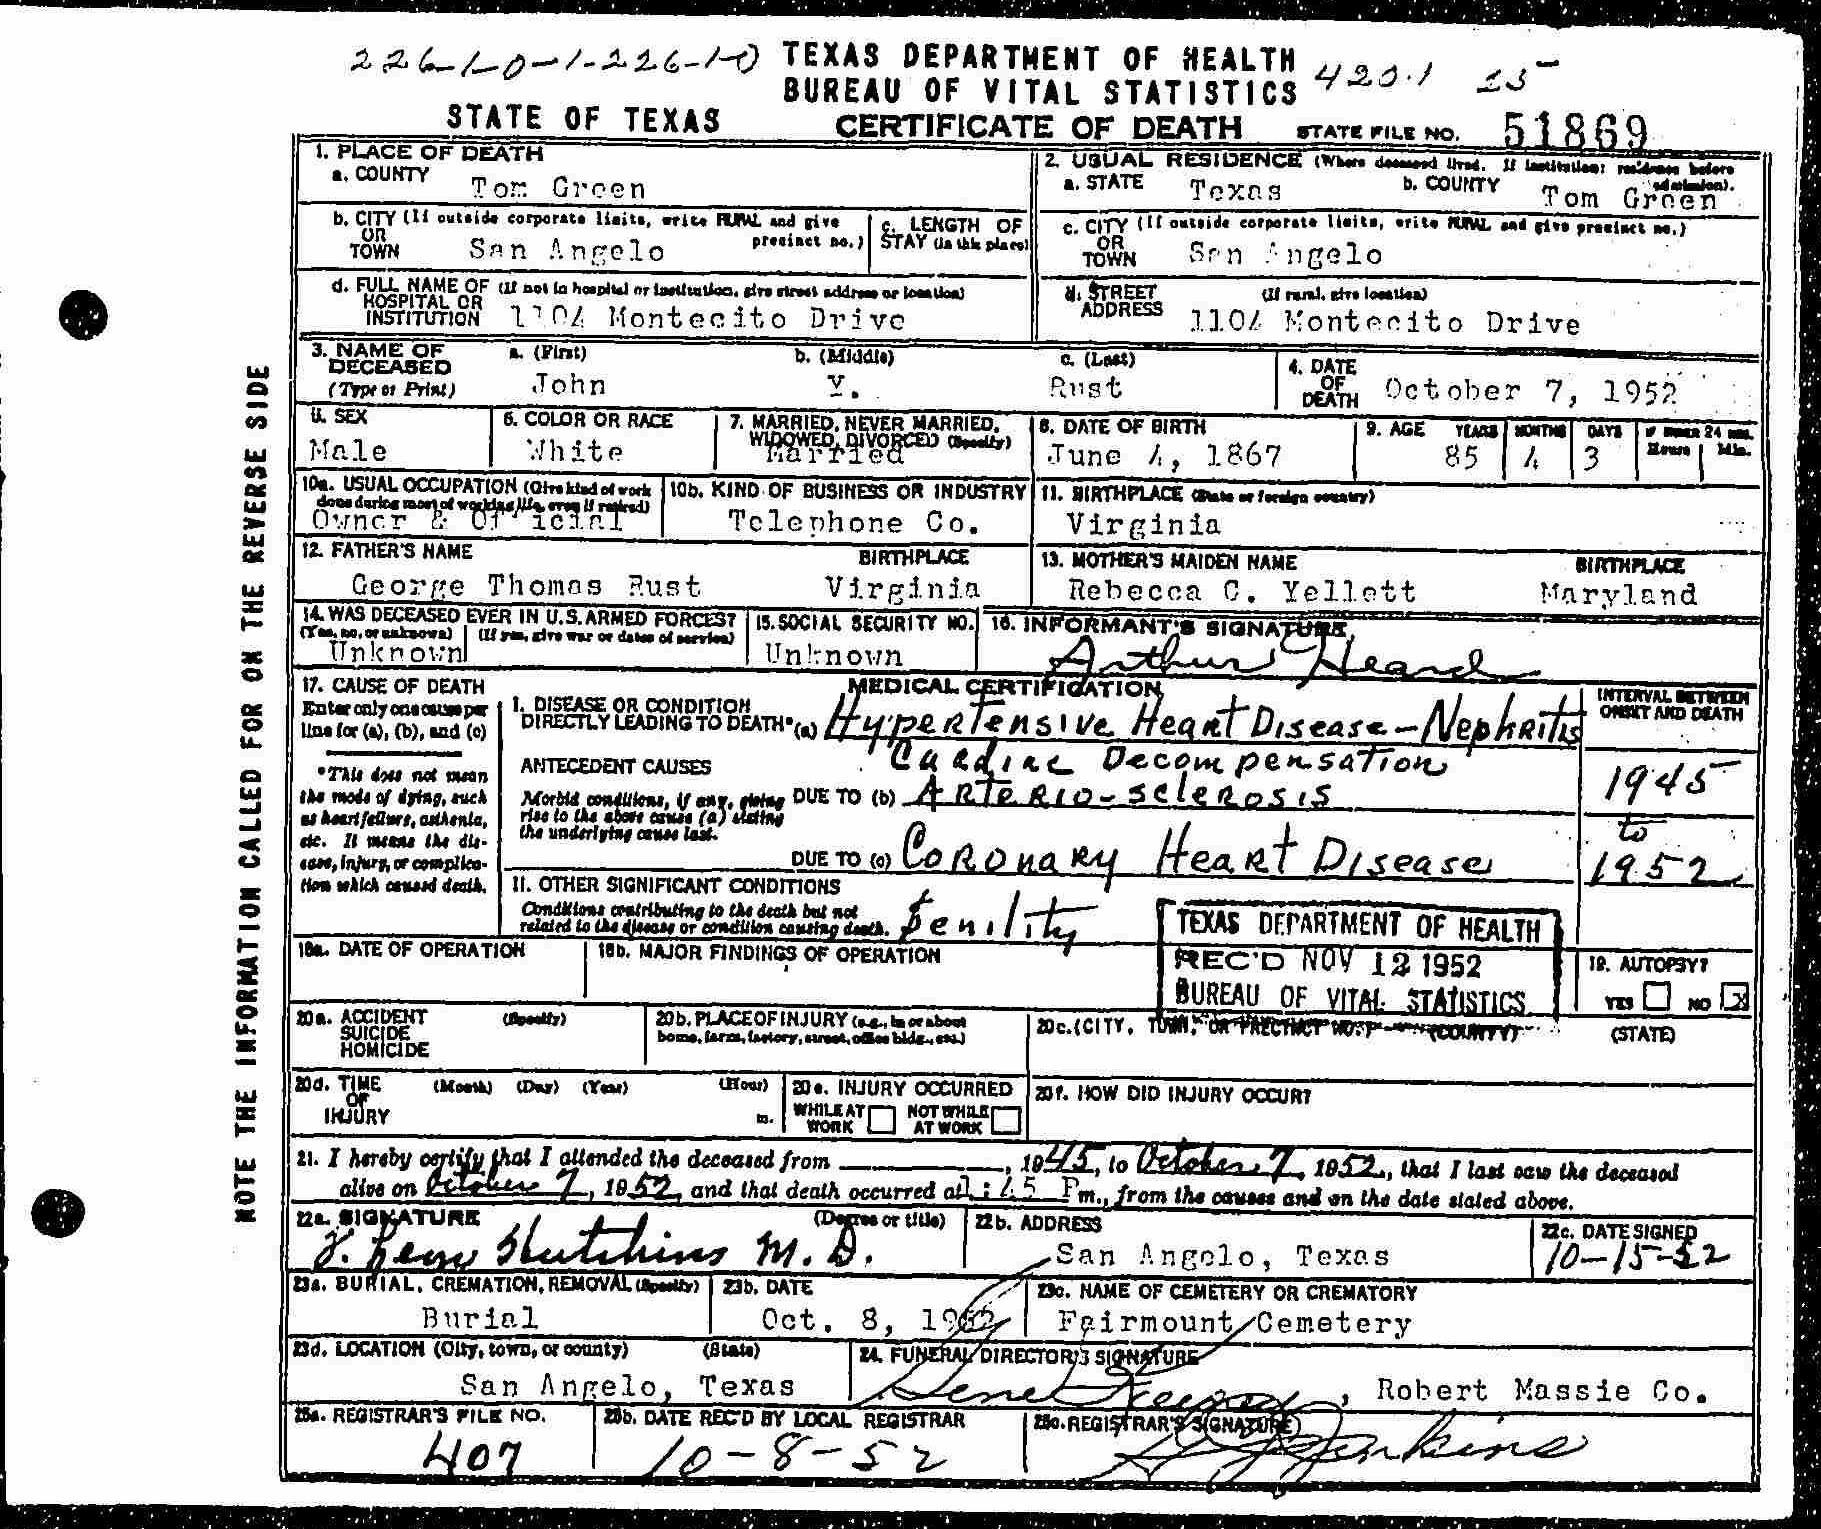 226-1-0-1-226-1-0 TEXAS DEPARTMENT OF HEALTH 420.1 25
BUREAU OF VITAL STATISTICS
STATE OF TEXAS CERTIFICATE OF DEATH STATE FILE NO. 51869
NOTE THE INFORMATION CALLED FOR ON THE REVERSE SIDE
1. PLACE OF DEATH
a. COUNTY Tom Green
2. USUAL RESIDENCE (Where deceased lived. If institution: residence before admission).
a. STATE Texas b. COUNTY Tom Green
b. CITY (If outside corporate limits, write RURAL and give precinct no.)
OR
TOWN San Angelo
c. LENGTH OF
STAY (in this place)
c. CITY (If outside corporate limits, write RURAL and give precinct no.)
OR
TOWN San Angelo
d. FULL NAME OF (If not in hospital or institution, give street address or location)
HOSPITAL OR
INSTITUTION 1104 Montecito Drive
d. STREET (If rural, give location)
ADDRESS 1104 Montecito Drive
3. NAME OF DECEASED (Type or Print)
a. (First) John
b. (Middle) Y.
c. (Last) Rust
4. DATE OF DEATH October 7, 1952
5. SEX
Male
6. COLOR OR RACE
White
7. MARRIED, NEVER MARRIED,
WIDOWED, DIVORCED (Specify)
Married
8. DATE OF BIRTH
June 4, 1867
9. AGE YEARS MONTHS DAYS IF UNDER 24 HRS.
Hours Min.
85 4 3
10a. USUAL OCCUPATION (Give kind of work
done during most of working life, even if retired)
Owner & Official
10b. KIND OF BUSINESS OR INDUSTRY
Telephone Co.
11. BIRTHPLACE (State or foreign country)
Virginia
12. FATHER'S NAME BIRTHPLACE
George Thomas Rust Virginia
13. MOTHER'S MAIDEN NAME BIRTHPLACE
Rebecca C. Yellott Maryland
14. WAS DECEASED EVER IN U.S. ARMED FORCES?
(Yes, no, or unknown) (If yes, give war or dates of service)
Unknown
15. SOCIAL SECURITY NO.
Unknown
16. INFORMANT'S SIGNATURE
Arthur Heard
17. CAUSE OF DEATH
Enter only one cause per
line for (a), (b), and (c)
*This does not mean
the mode of dying, such
as heart failure, asthenia,
etc. It means the dis-
ease, injury, or complica-
tion which caused death.
MEDICAL CERTIFICATION
I. DISEASE OR CONDITION
DIRECTLY LEADING TO DEATH* (a) Hypertensive Heart Disease - Nephritis
Cardiac Decompensation
ANTECEDENT CAUSES
Morbid conditions, if any, giving
rise to the above cause (a) stating
the underlying cause last.
DUE TO (b) Arterio-sclerosis
DUE TO (c) Coronary Heart Disease
INTERVAL BETWEEN
ONSET AND DEATH
1945
to
1952
II. OTHER SIGNIFICANT CONDITIONS
Conditions contributing to the death but not
related to the disease or condition causing death. Senility
TEXAS DEPARTMENT OF HEALTH
REC'D NOV 12 1952
BUREAU OF VITAL STATISTICS
18a. DATE OF OPERATION
18b. MAJOR FINDINGS OF OPERATION
19. AUTOPSY?
YES NO X
20a. ACCIDENT (Specify)
SUICIDE
HOMICIDE
20b. PLACE OF INJURY (e.g., in or about
home, farm, factory, street, office bldg., etc.)
20c. (CITY, TOWN, OR PRECINCT NO.) (COUNTY) (STATE)
20d. TIME (Month) (Day) (Year) (Hour)
OF
INJURY m.
20e. INJURY OCCURRED
WHILE AT WORK NOT WHILE AT WORK
20f. HOW DID INJURY OCCUR?
21. I hereby certify that I attended the deceased from , 1945, to October 7, 1952, that I last saw the deceased
alive on October 7, 1952, and that death occurred at 1:45 P m., from the causes and on the date stated above.
22a. SIGNATURE (Degree or title)
Hutchins M.D.
22b. ADDRESS
San Angelo, Texas
22c. DATE SIGNED
10-15-52
23a. BURIAL, CREMATION, REMOVAL (Specify)
Burial
23b. DATE
Oct. 8, 1952
23c. NAME OF CEMETERY OR CREMATORY
Fairmount Cemetery
23d. LOCATION (City, town, or county) (State)
San Angelo, Texas
24. FUNERAL DIRECTOR'S SIGNATURE
Gene , Robert Massie Co.
25a. REGISTRAR'S FILE NO.
407
25b. DATE REC'D BY LOCAL REGISTRAR
10-8-52
25c. REGISTRAR'S SIGNATURE
Jenkins